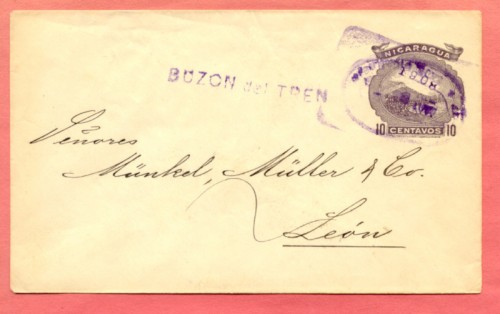 NICARAGUA
1908
BUZON del TREN
10 CENTAVOS 10
Señores
Münkel, Müller & Co.
León